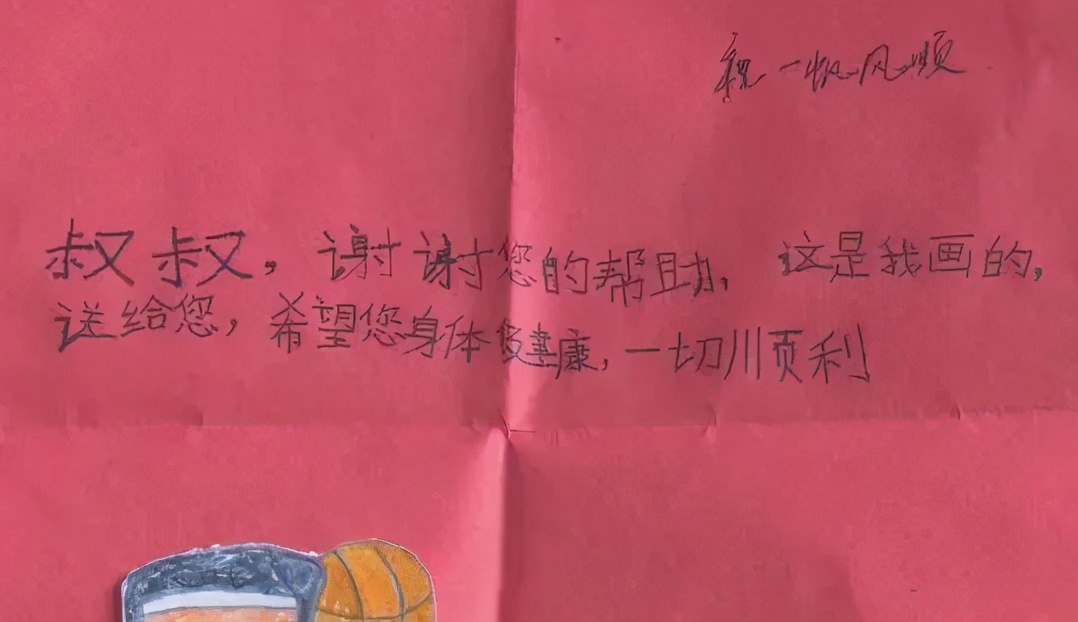 祝一帆风顺
叔叔，谢谢您的帮助，这是我画的，
送给您，希望您身体健康，一切顺利